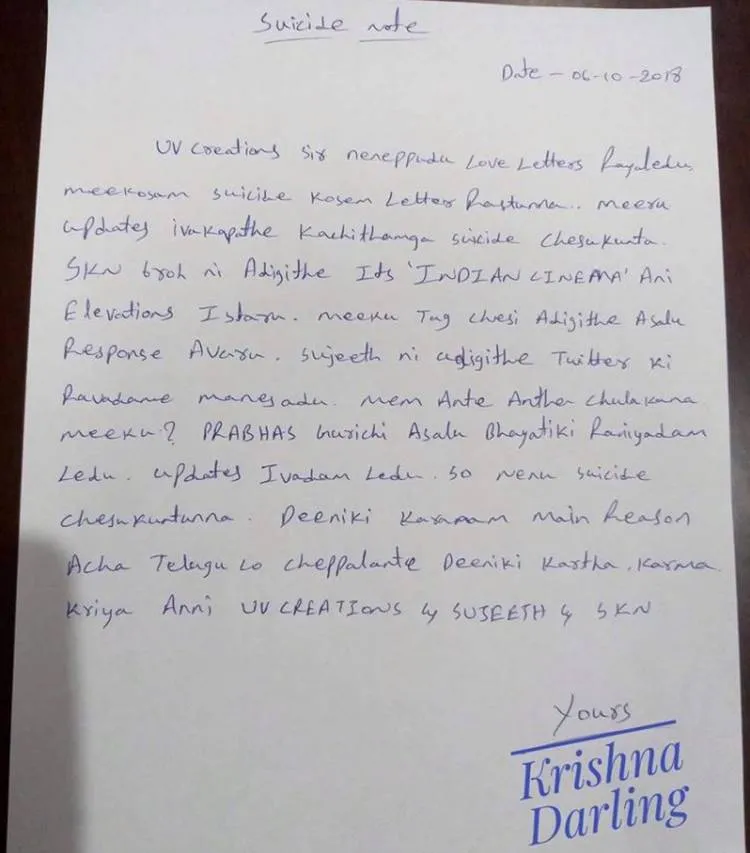 Suicide note
Date - 06-10-2018
UV Creations sir neneppudu Love Letters Rayaledu,
meekosam suicide kosem Letter Rastunna.. meeru
updates ivakapothe Kachithamga suicide chesukunta.
SKN broh ni Adigithe Its 'INDIAN CINEMA' Ani
Elevations Istaru. meeku Tag chesi Adigithe Asalu
Response Avaru. sujeeth ni adigithe Twitter ki
Ravadame manesadu. mem Ante Antha chulakana
meeku? PRABHAS Gurichi Asalu Bhayatiki Raniyadam
Ledu. updates Ivadam Ledu. so nenu suicide
chesukuntunna. Deeniki Karanam main Reason
Acha Telugu lo cheppalante Deeniki Kartha, Karma
Kriya Anni UV CREATIONS & SUJEETH & SKN
Yours
Krishna
Darling